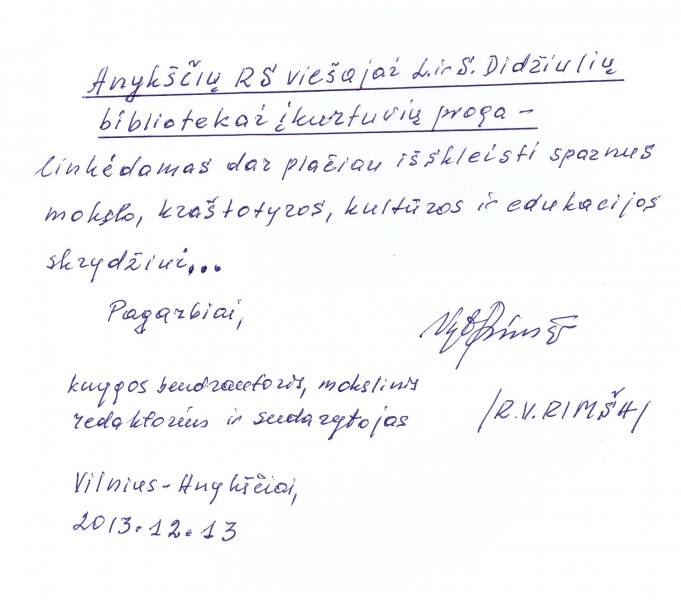 Anykščių RS viešajai L. ir S. Didžiulių
bibliotekai įkurtuvių proga –
linkėdamas dar plačiau išskleisti sparnus
mokslo, kraštotyros, kultūros ir edukacijos
skrydžiui...
Pagarbiai,
knygos bendraautoris, mokslinis
redaktorius ir sudarytojas
/R.V. RIMŠA/
Vilnius-Anykščiai,
2013.12.13